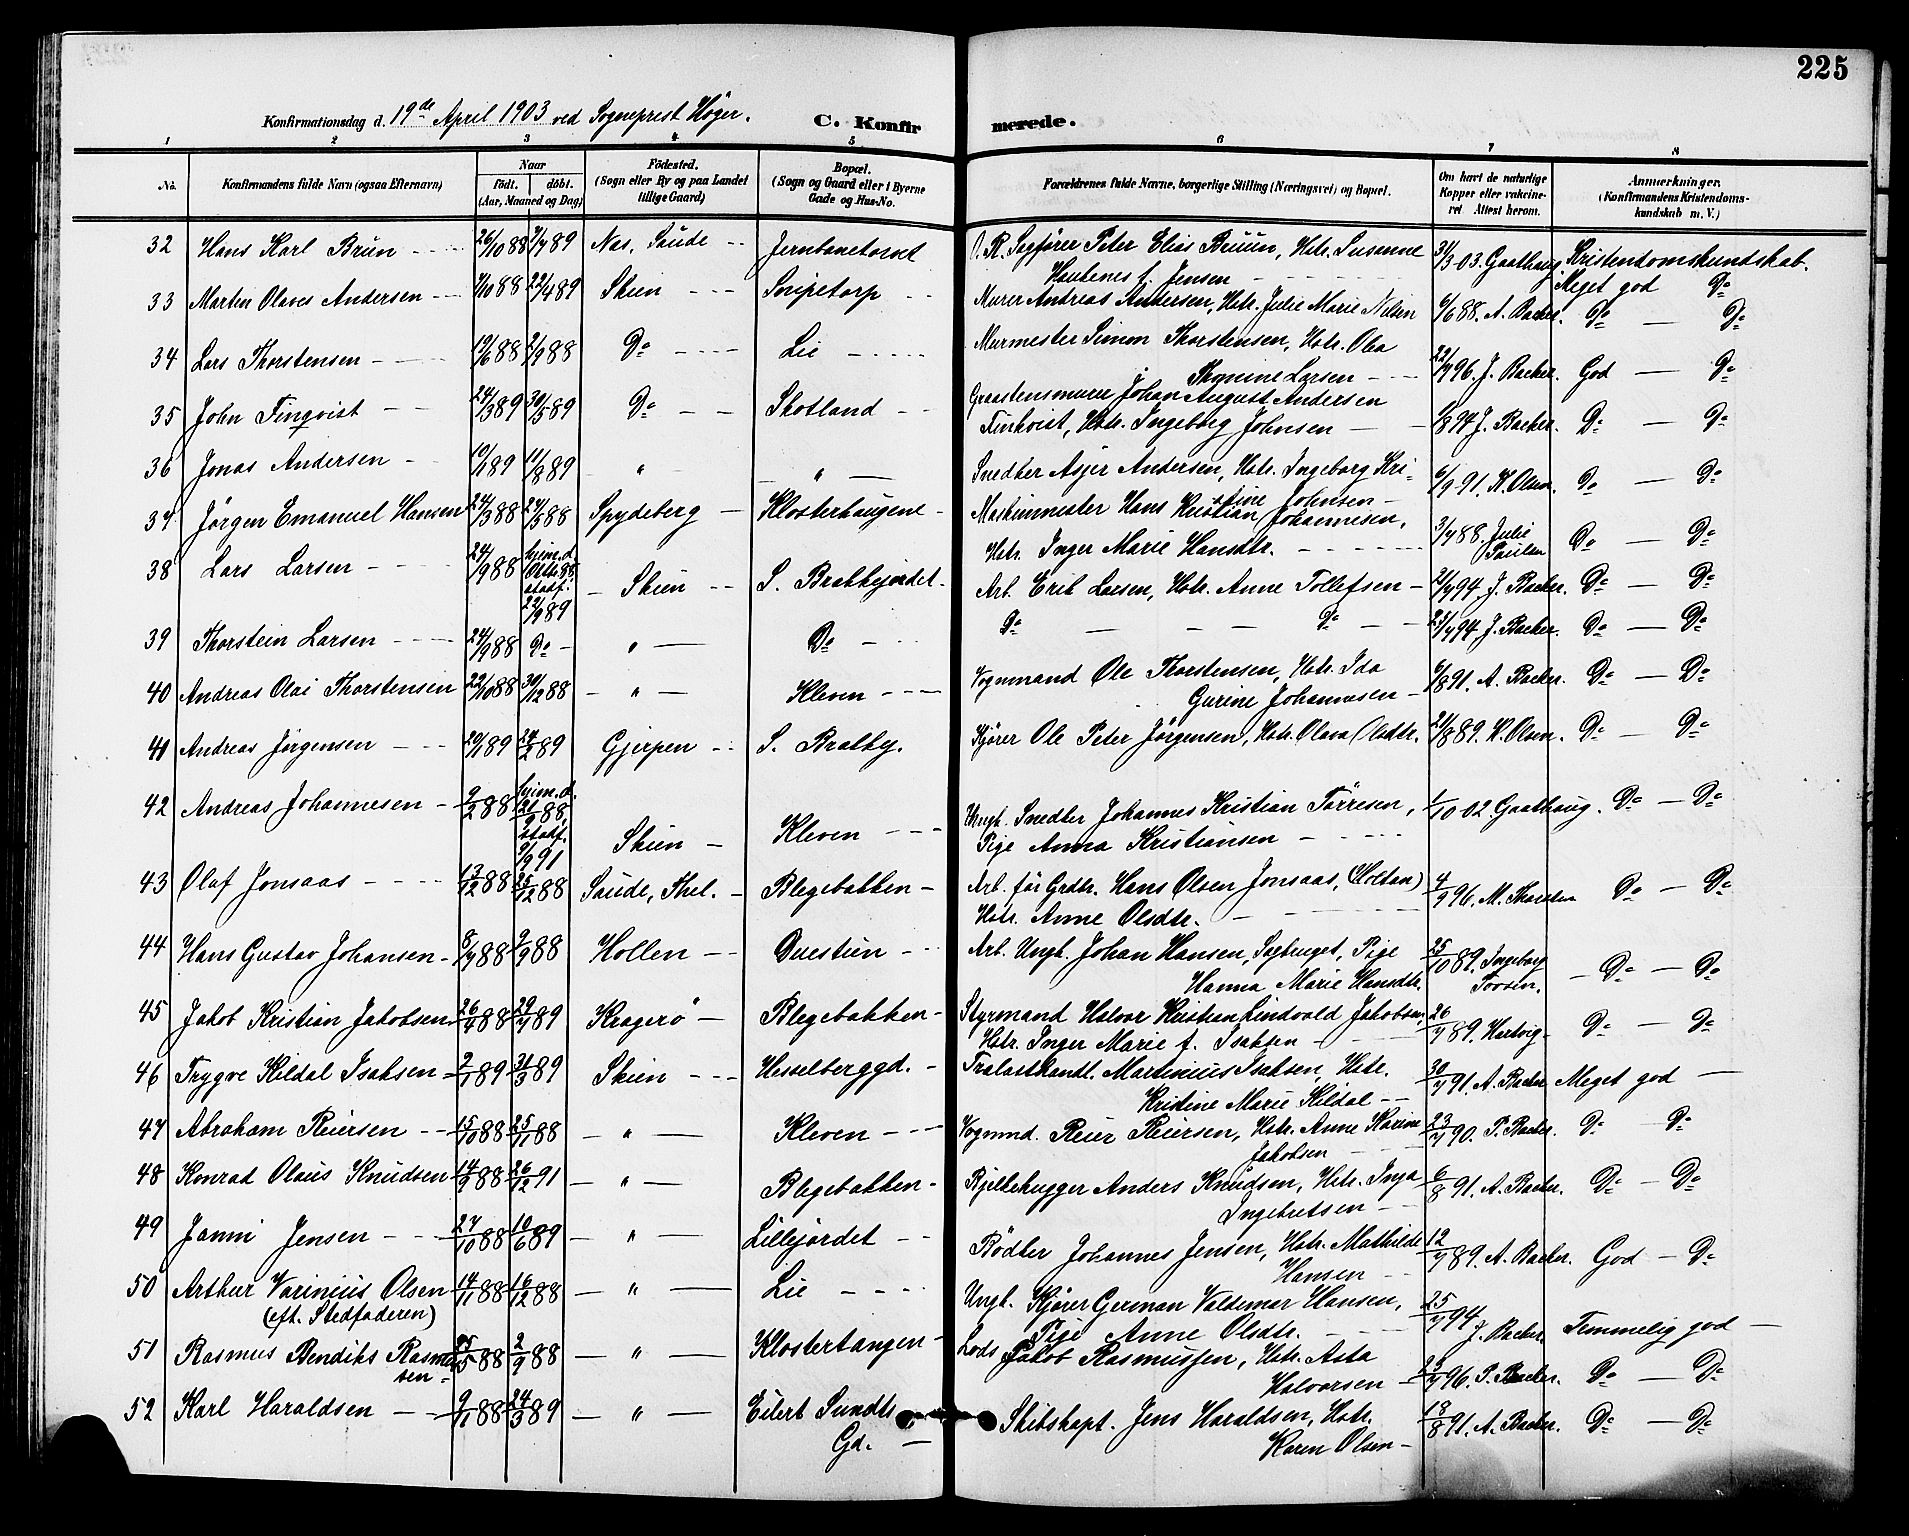 225
Konfirmationsdag d. 19de April 1903 ved Sogneprest Höyer. C. Konfirmerede.
1 2 3 4 5 6 7 8
No. Konfirmandens fulde Navn (ogsaa Efternavn) Naar födt. döbt. (Aar, Maaned og Dag) Födested. (Sogn eller By og paa Landet tillige Gaard) Bopæl. (Sogn og Gaard eller i Byerne Gade og Hus-No. Forældrenes fulde Navne, borgerlige Stilling (Næringsvei) og Bopæl. Om havt de naturlige Kopper eller vakcineret Attest herom. Anmærkninger. (Konfirmandens Kristendomskundskab m. V.)
32 Hans Karl Brun 26/10 88 7/7 89 Nas, Saude Jernbanetorvet O. R. Sagfører Peter Elias Bruun, Hstr. Susanne 31/3 03. Gaathaug. Kristendomskundskab.
f. Jensen Meget god Do
33 Martin Olaves Andersen 7/10 88 22/4 89 Skien Snipetorp Murer Andreas Andersen, Hstr. Julie Marie Nilsen 6/6 88. A. Backer. Do — Do
34 Lars Thorstensen 19/6 88 2/9 88 Do Lie Murmester Simon Thorstensen, Hstr. Olea
Thonine Larsen 22/7 96. J. Backer. God — Do
35 John Finqvist 24/3 89 30/5 89 Do Skotland Graastensmurer Johan August Andersen
Finkvist, Hstr. Ingeborg Johnsen 94 J. Backer. Do Do
36 Jonas Andersen 19/1 89 11/8 89 " " Snedker Asjer Andersen, Hstr. Ingeborg Kri-
stine Johnsen 6/9 91. K. Olsen. Do — Do
37 Jørgen Emanuel Hansen 24/3 88 21/5 88 Spydeberg Klosterhaugene Maskinmester Hans Kristian Johannesen,
Hstr. Inger Marie Hansdtr. 3/7 88. Julie Paulsen Do — Do
38 Lars Larsen 24/9 88 hjem.d. Oktr. 88 stadf. 22/9 89 Skien S. Brekkejordet Arb. Erik Larsen, Hstr. Anne Tollefsen 2/7 94. J. Backer. Do — Do
39 Thorstein Larsen 24/9 88 Do " Do Do — — — Do 23/7 94 J. Backer. Do — Do
40 Andreas Olai Thorstensen 22/10 88 30/12 88 " Kleven Vognmand Ole Thorstensen, Hstr. Ida
Gurine Johannesen 6/8 91. A. Backer. Do — Do
41 Andreas Jørgensen 20/1 89 24/2 89 Gjerpen S. Brekky. Kjører Ole Peter Jørgensen, Hstr. Olava Olsdtr. 21/8 89. K. Olsen. Do — Do
42 Andreas Johannesen 9/2 88 hjem.d. 21/9 88, stadf. 9/9 91 Skien Kleven Ungk. Snedker Johannes Kristian Tørresen, 1/10 02 Gaathaug. Do — Do
Pige Anna Kristiansen
43 Olaf Jonsaas 13/12 88 25/12 88 Saude, Thel. Blegebakken Arb. før Grdbr. Hans Olsen Jonsaas, (Holtan) 4/9 96. M. Thorsten Do — Do
Hstr. Anne Olsdtr.
44 Hans Gustav Johansen 8/7 88 9/9 88 Hollen Duestien Arb. Ungk. Johan Hansen, Sagbruget, Pige 25/10 89. Ingeborg
Hanna Marie Hansdtr. Do — Do
45 Jakob Kristian Jakobsen 26/7 88 29/7 89 Kragerö Blegebakken Styrmand Halvor Kristian Lindvold Jakobsen, 26/7 89. Hertvig Do — Do
Hstr. Inger Marie f. Isaksen
46 Trygve Kildal Isaksen 2/1 89 31/3 89 Skien Hesselberggd. Trælasthandl. Martinius Isaksen, Hstr. 30/7 91. A. Backer Meget god —
Kristine Marie Kildal
47 Abraham Reiersen 15/10 88 25/11 88 " Kleven Vognmd. Reier Reiersen, Hstr. Anne Karine 23/7 90. P. Backer. Do Do
Jakobsen
48 Konrad Olaus Knudsen 14/9 88 26/12 91 " Blegebakken Bjelkehugger Anders Knudsen, Hstr. Inga 6/8 91. A. Backer. Do — Do
Ingebretsen
49 Janni Jensen 27/10 88 10/6 89 " Lillejordet Bødker Johannes Jensen, Hstr. Mathilde 12/7 89. A. Backer. God — Do
Hansen
50 Arthur Varinius Olsen 14/11 88 16/12 88 " Lie Ungk. Kjører German Valdemar Hansen, 25/7 94 J. Backer. Temmelig god
(eft. Stedfaderen) Pige Anne Olsdtr.
51 Rasmus Bendiks Rasmussen 25/5 88 2/9 88 " Klostertangen Lods Jakob Rasmussen, Hstr. Asta
Halvorsen 25/7 96. P. Backer. Do — Do
52 Karl Haraldsen 9/11 88 24/3 89 " Eilert Sundts Gd. Skibskapt. Jens Haraldsen, Hstr. 18/8 91. A. Backer. Do — Do
Karen Olsen